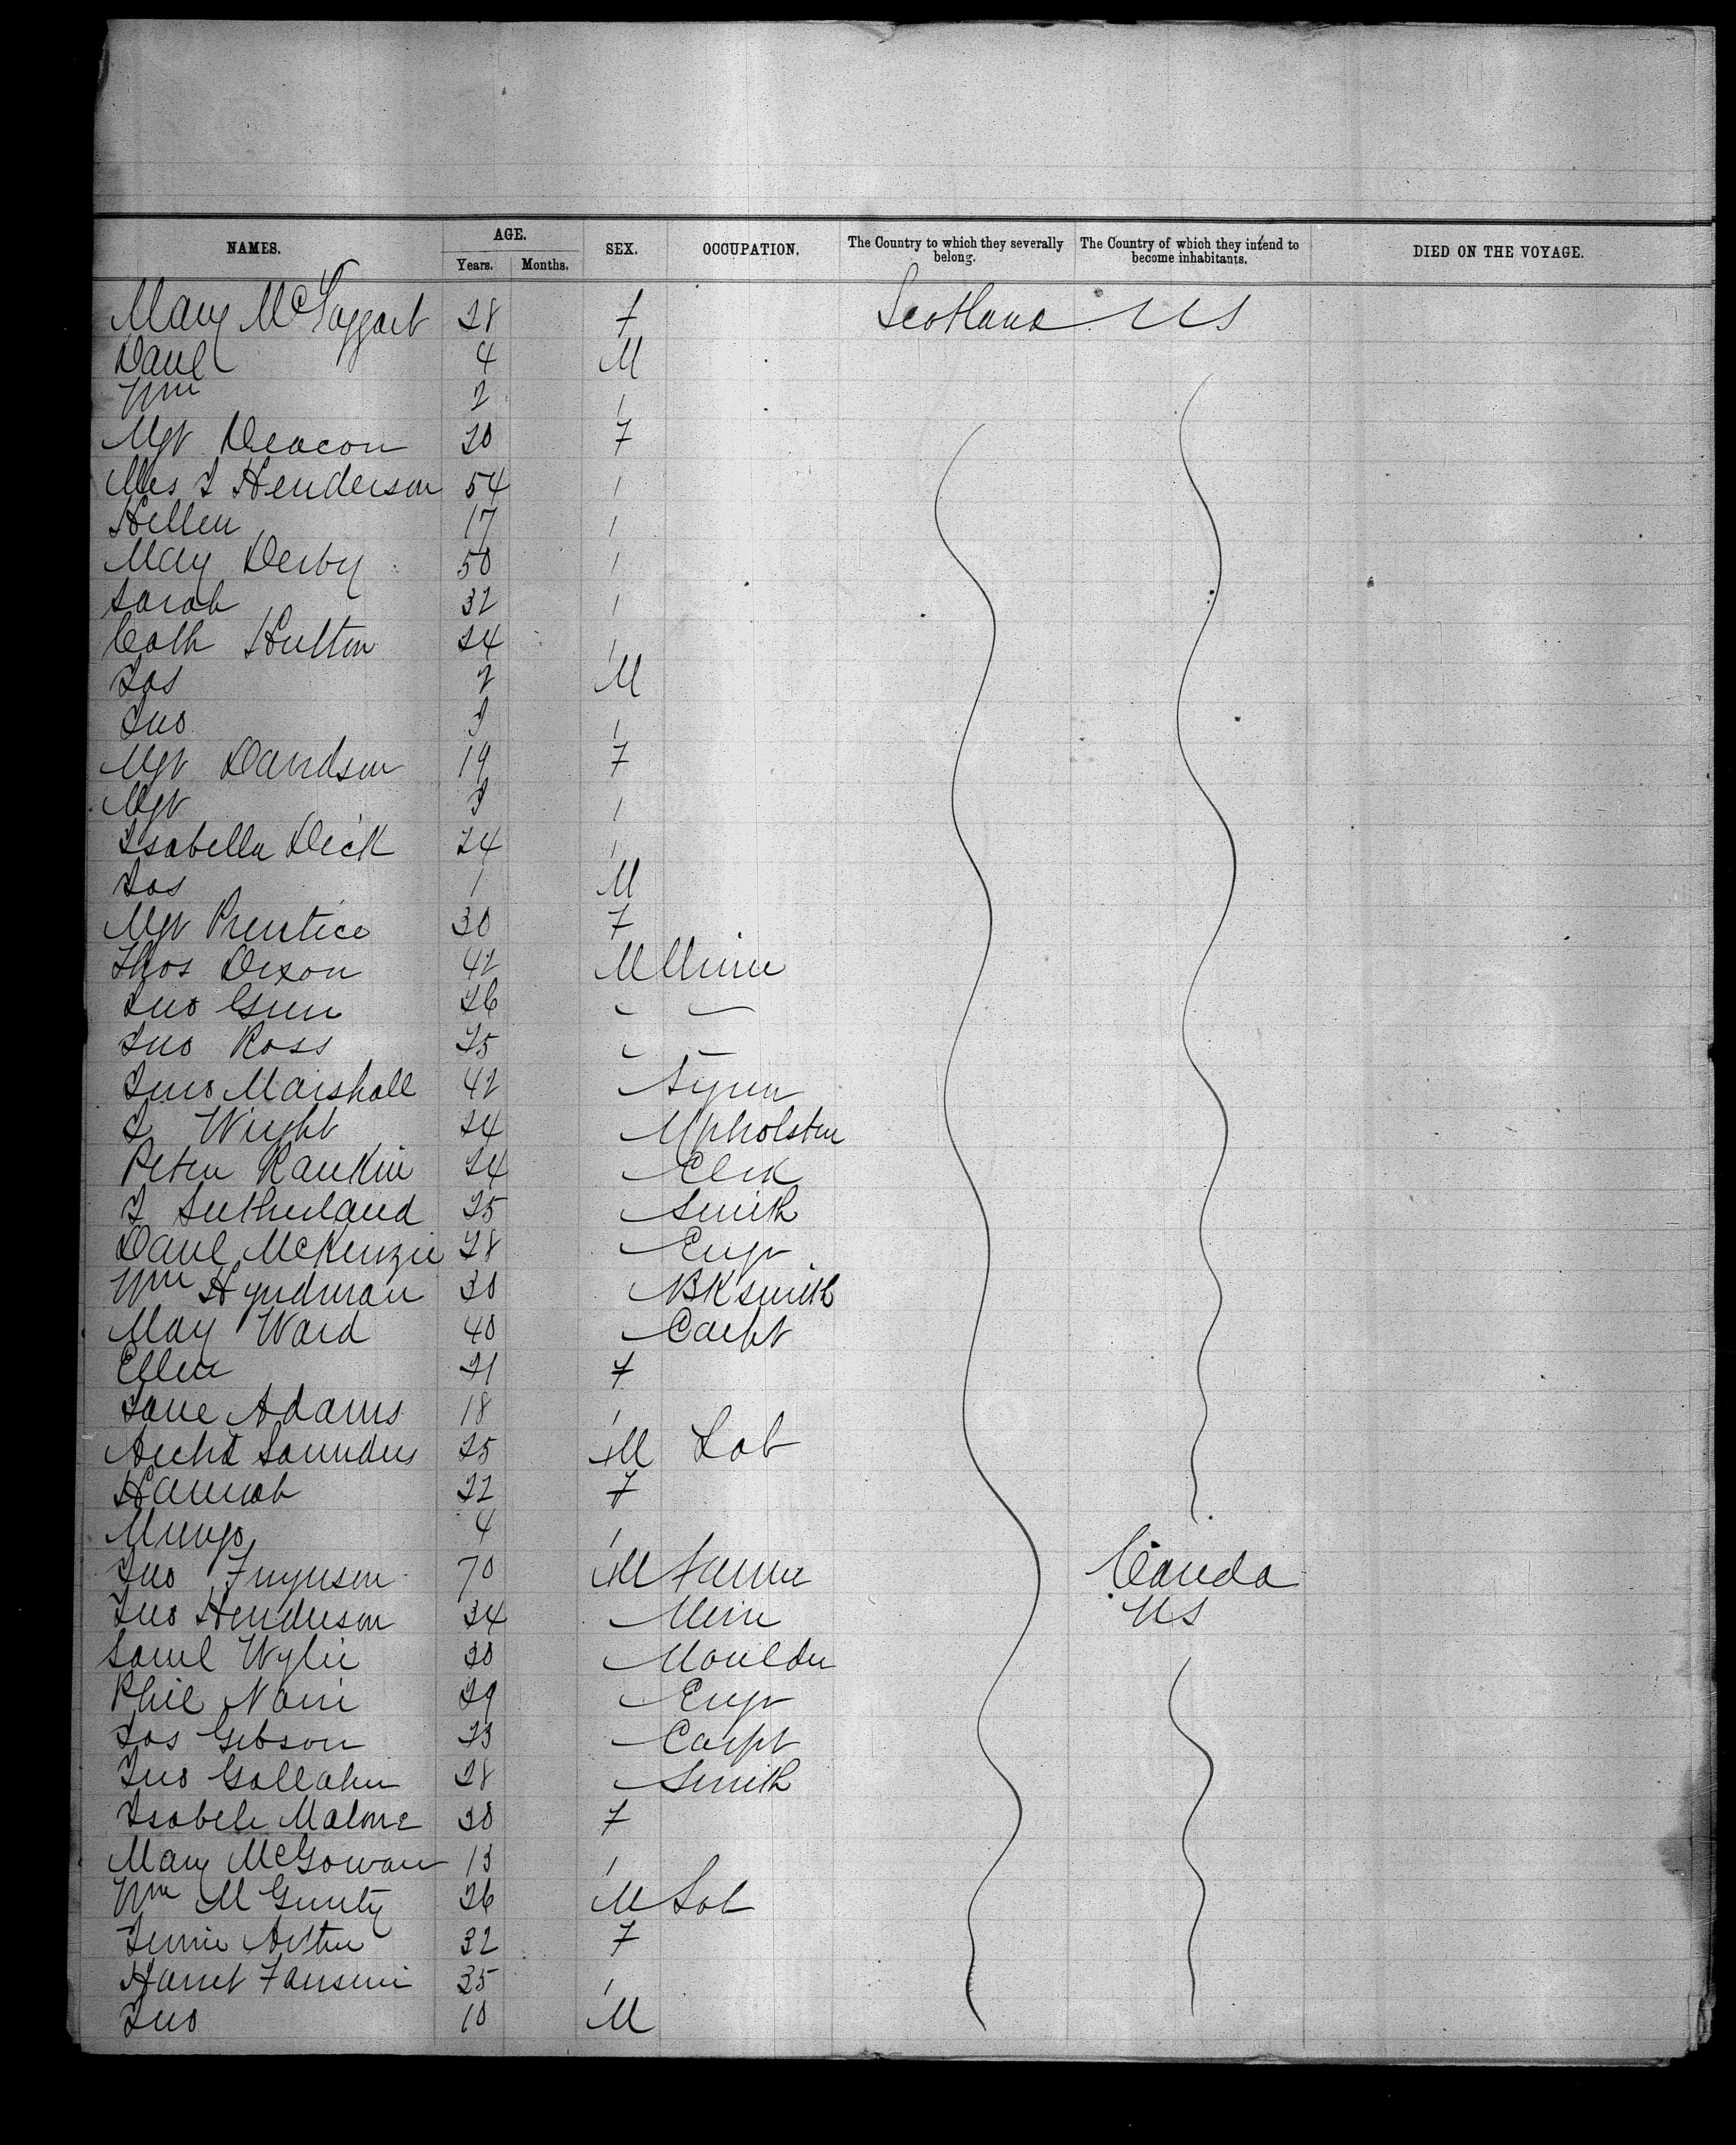 NAMES. AGE. SEX. OCCUPATION. The Country to which they severally belong. The Country of which they intend to become inhabitants. DIED ON THE VOYAGE.
Years. Months.
Mary McTaggart 28 F Scotland US
Danl 4 M
Wm 2 /
Mgt Deacon 20 F
Mrs J Henderson 54 /
Hellen 17 /
Mary Derby 50 /
Sarah 32 /
Cath Hutton 24 /
Jas 2 M
Jno /
Mgt Davidson 19 F
Mgt /
Isabella Dick 24 /
Jas 1 M
Mgt Prentice 30 F
Thos Dixon 42 M Miner
Jno Gunn 26
Jno Ross 25
Jno Marshall 42
J Wright 24 Upholster
Peter Rankin 24 Clerk
J Sutherland 25 Smith
Danl McKenzie 28 Engr
Wm Hyndman 30 BKsmith
May Ward 40 Carpt
Ellen 21 F
Jane Adams 18 /
Archd Saunders 25 M Lab
Hannah 22 F
Mungo 4 /
Jno Ferguson 70 M Farmer Canada
Jno Henderson 34 Miner US
Saml Wylie 30 Moulder
Phil Nairn 29 Engr
Jas Gibson 23 Carpt
Jno Gallaher 28 Smith
Isabele Malone 30 F
Mary McGowan 13 /
Wm M Gunty 26 M Lab
Jennie Arthur 32 F
Harriet 35 /
Jno 10 M